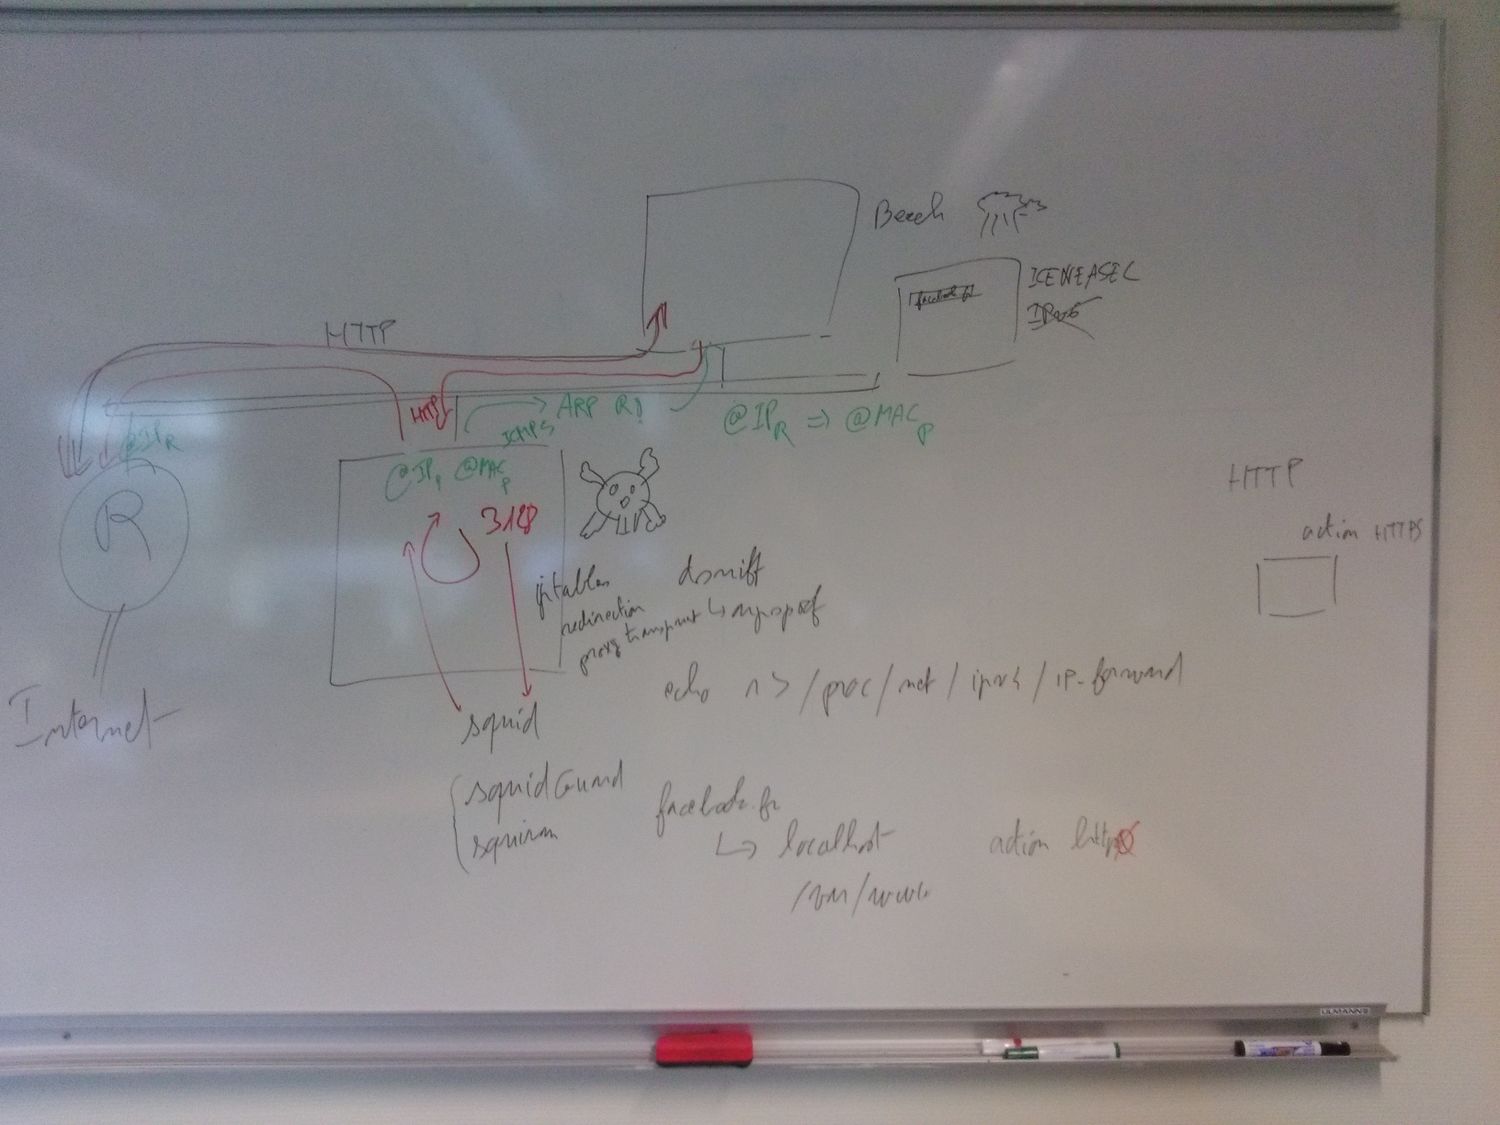 Beech
ICEWEASEL
facebook.fr
IPv6
HTTP
HTTP
ARP R!
ICMPS
@IP R => @MAC P
@IP R
@IP P @MAC P
R
3128
HTTP
action HTTPS
iptables
redirection
proxy transparent
dsniff
↳ arpspoof
echo 1 > /proc/net/ipv4/ip_forward
Internet
squid
squidGuard
squirm
facebook.fr
↳ localhost
/var/www
action http
ULMANN